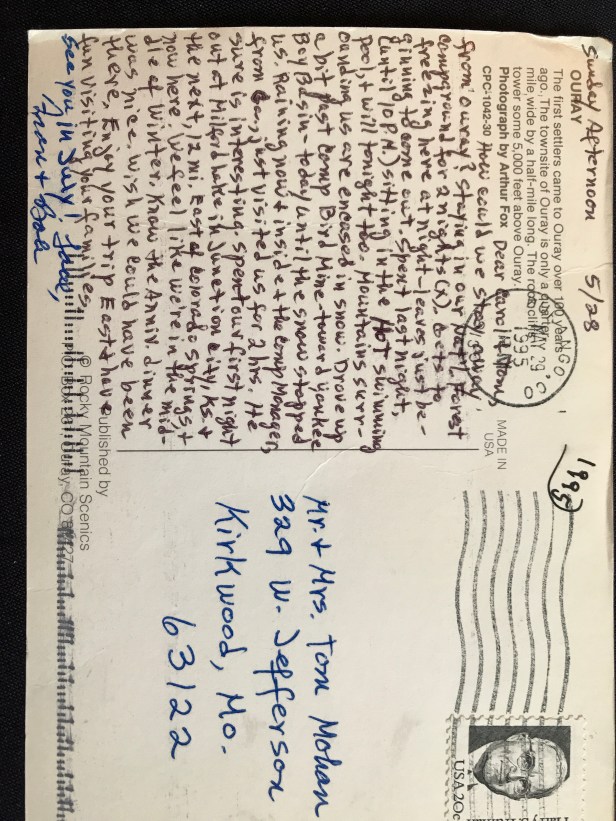 Sunday Afternoon 5/28
OURAY
The first settlers came to Ouray over 100 years
ago. The townsite of Ouray is only a quarter
mile wide by a half-mile long. The rocky cliffs
tower some 5,000 feet above Ouray.
Photograph by Arthur Fox Dear Carol + Tom,
CPC-1042-30 How could we stay away
from Ouray? Staying in our Nat'l. Forest
campground for 2 nights (x). Gets to
freezing here at night - leaves just be-
ginning to come out. Spent last night,
(until 10 P.M.) sitting in the Hot swimming
pool, + will tonight too. Mountains surr-
ounding us are encased in snow. Drove up
a bit past Camp Bird Mine - toward Yankee
Boy Basin - today until the snow stopped
us. Raining now + inside + the camp Manager,
from Ga., just visited us for 2 hrs. He
sure is interesting. Spent our first night
out at Milford Lake in Junction City, Ks. +
the next, 12 mi. East of Colorado Springs, +
now here. We feel like we're in the mid-
dle of Winter. Know the Anniv. dinner
was nice. Wish we could have been
there. Enjoy your trip East + have
fun visiting your families.
See you in July! Love,
+ Bob
MADE IN
USA
Published by
© Rocky Mountain Scenics
Ouray, CO
1995
1995
USA 20c
Mr. + Mrs. Tom Mohan
329 W. Jefferson
Kirkwood, Mo.
63122